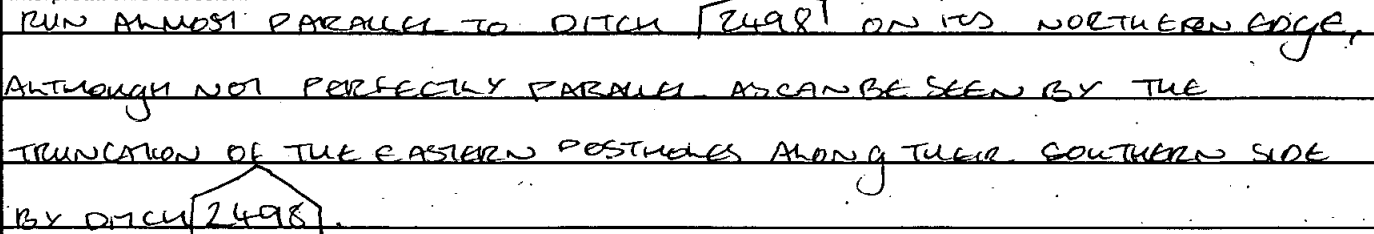 RUN ALMOST PARALLEL TO DITCH [2498] ON ITS NORTHERN EDGE,
ALTHOUGH NOT PERFECTLY PARALLEL AS CAN BE SEEN BY THE
TRUNCATION OF THE EASTERN POSTHOLES ALONG THEIR SOUTHERN SIDE
BY DITCH [2498].